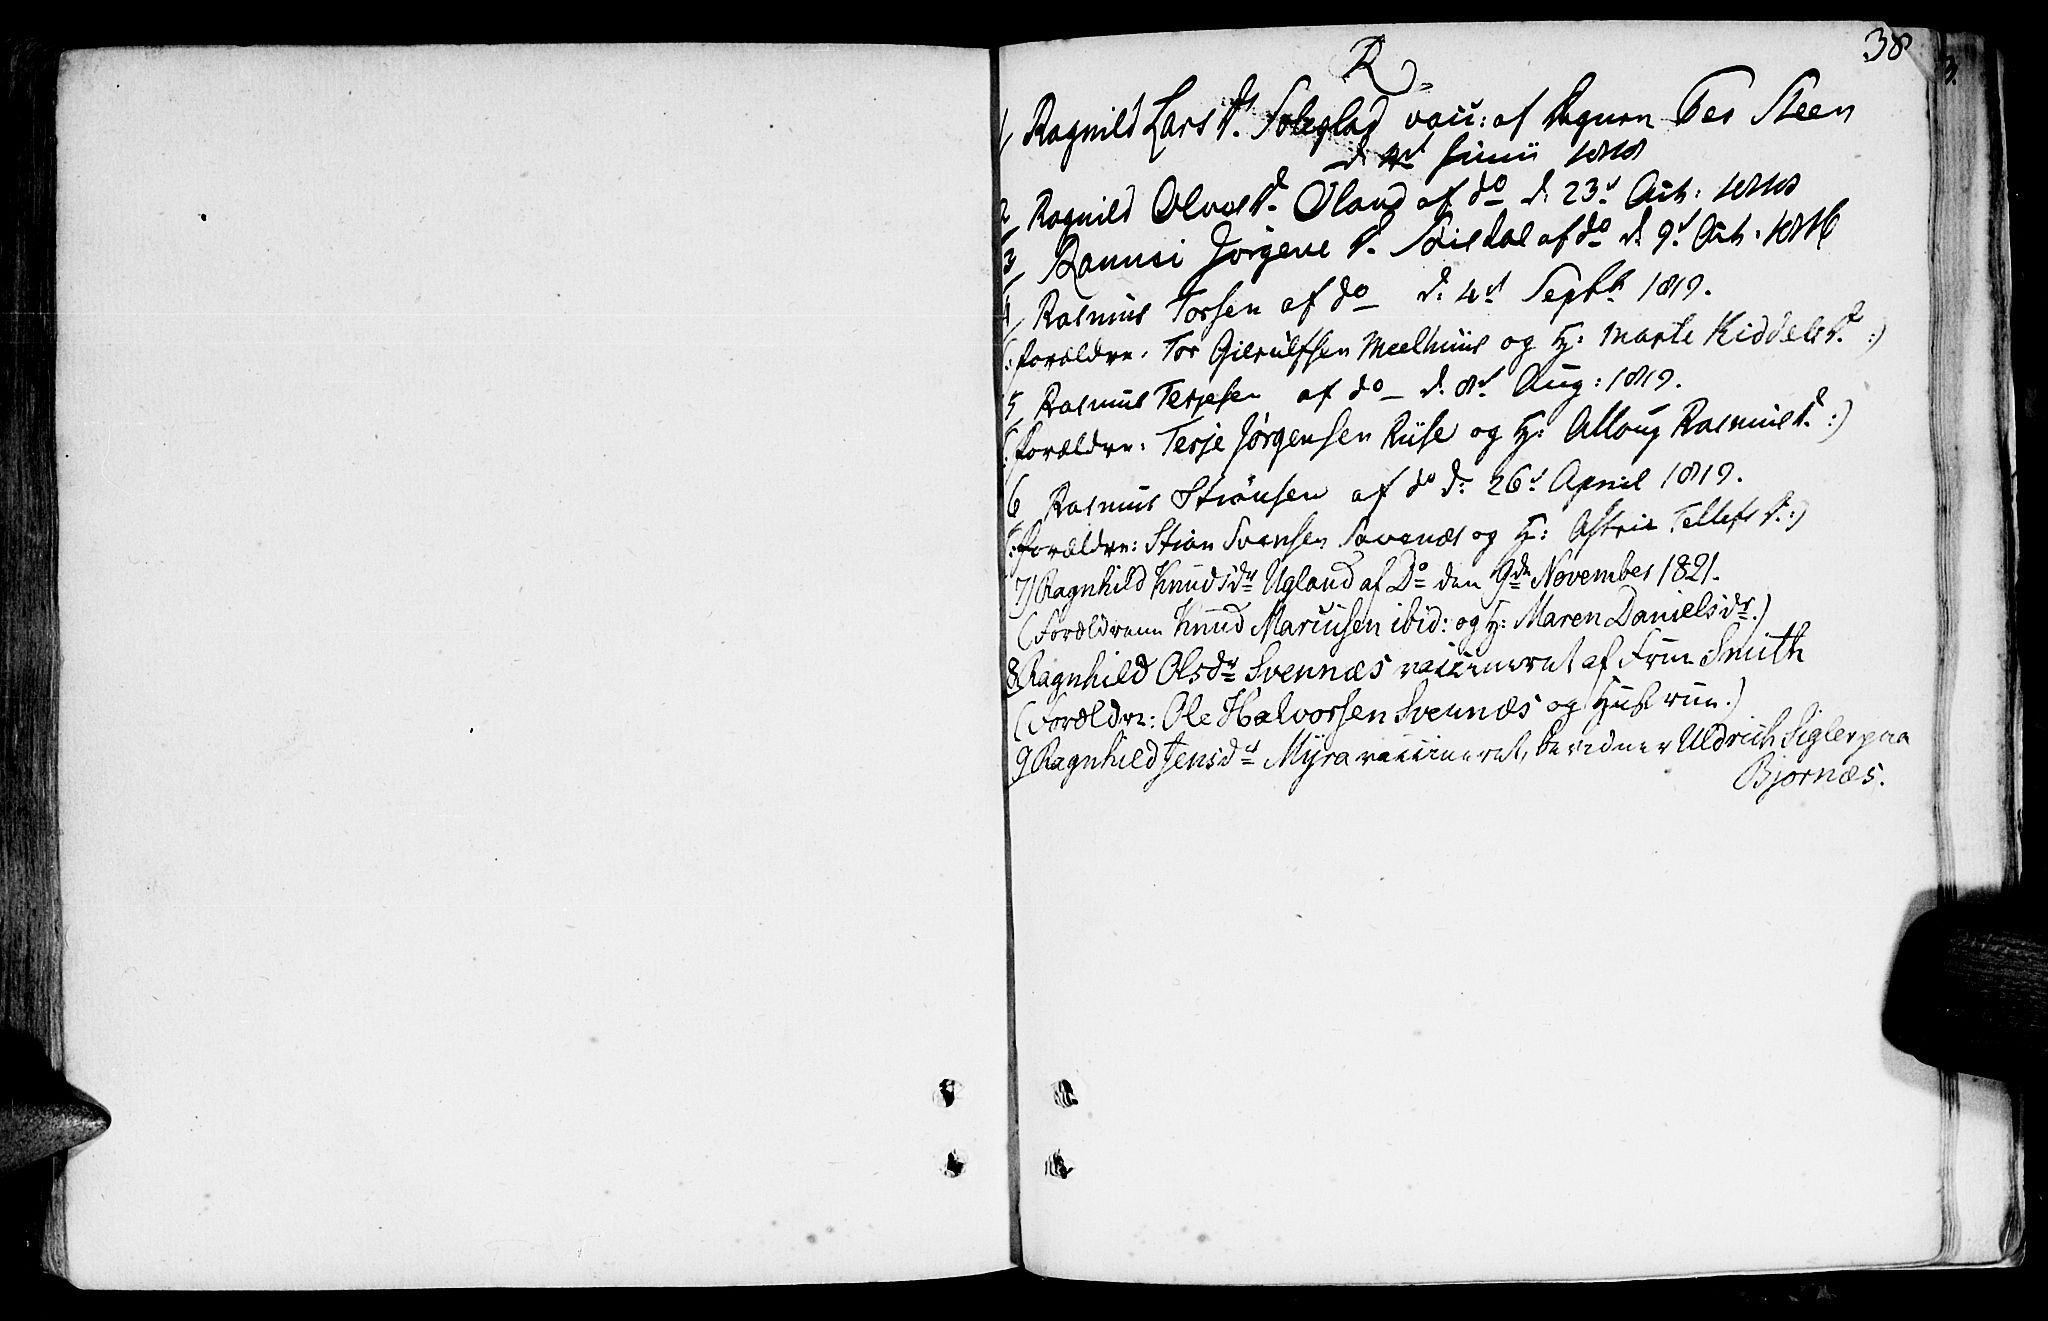 38
R
1/ Ragnild Lars D. vacc: af Degnen Ter Steen
d. Junii 1818
2/ Ragnild Olves D. Øland af do d. 23d Oct: 1818
3/ Rannei Jørgens D. af do d. 9d Oct: 1816
4/ Rasmus Torsen af do d. 4d Septb. 1819.
(: forældre: Tor Gierulfsen Meelhuus og H: Marte Kiddels D. :)
5/ Rasmus Terjesen af do d. 8d Aug: 1819.
(: forældre: Terje Jørgensen Riise og H: Alloug Rasmus D. :)
6 Rasmus Stiansen af do d: 26d April 1819.
(: forældre: Stian Svensen og H: Astrie Tellefs D. :)
7) Ragnhild Knudsdr Ugland af Do den 9de November 1821.
(Forældrene Knud Mariusen ibid: og H: Maren Danielsdr.)
8 Ragnhild Olsdr Svennæs vaccineret af Frue Smith
(Forældre: Ole Halvorsen Svennæs og Hustrue.)
9 Ragnhild Jensdr Myra vaccineret, bevidner Uldrich Sigler paa
Bjørnæs.